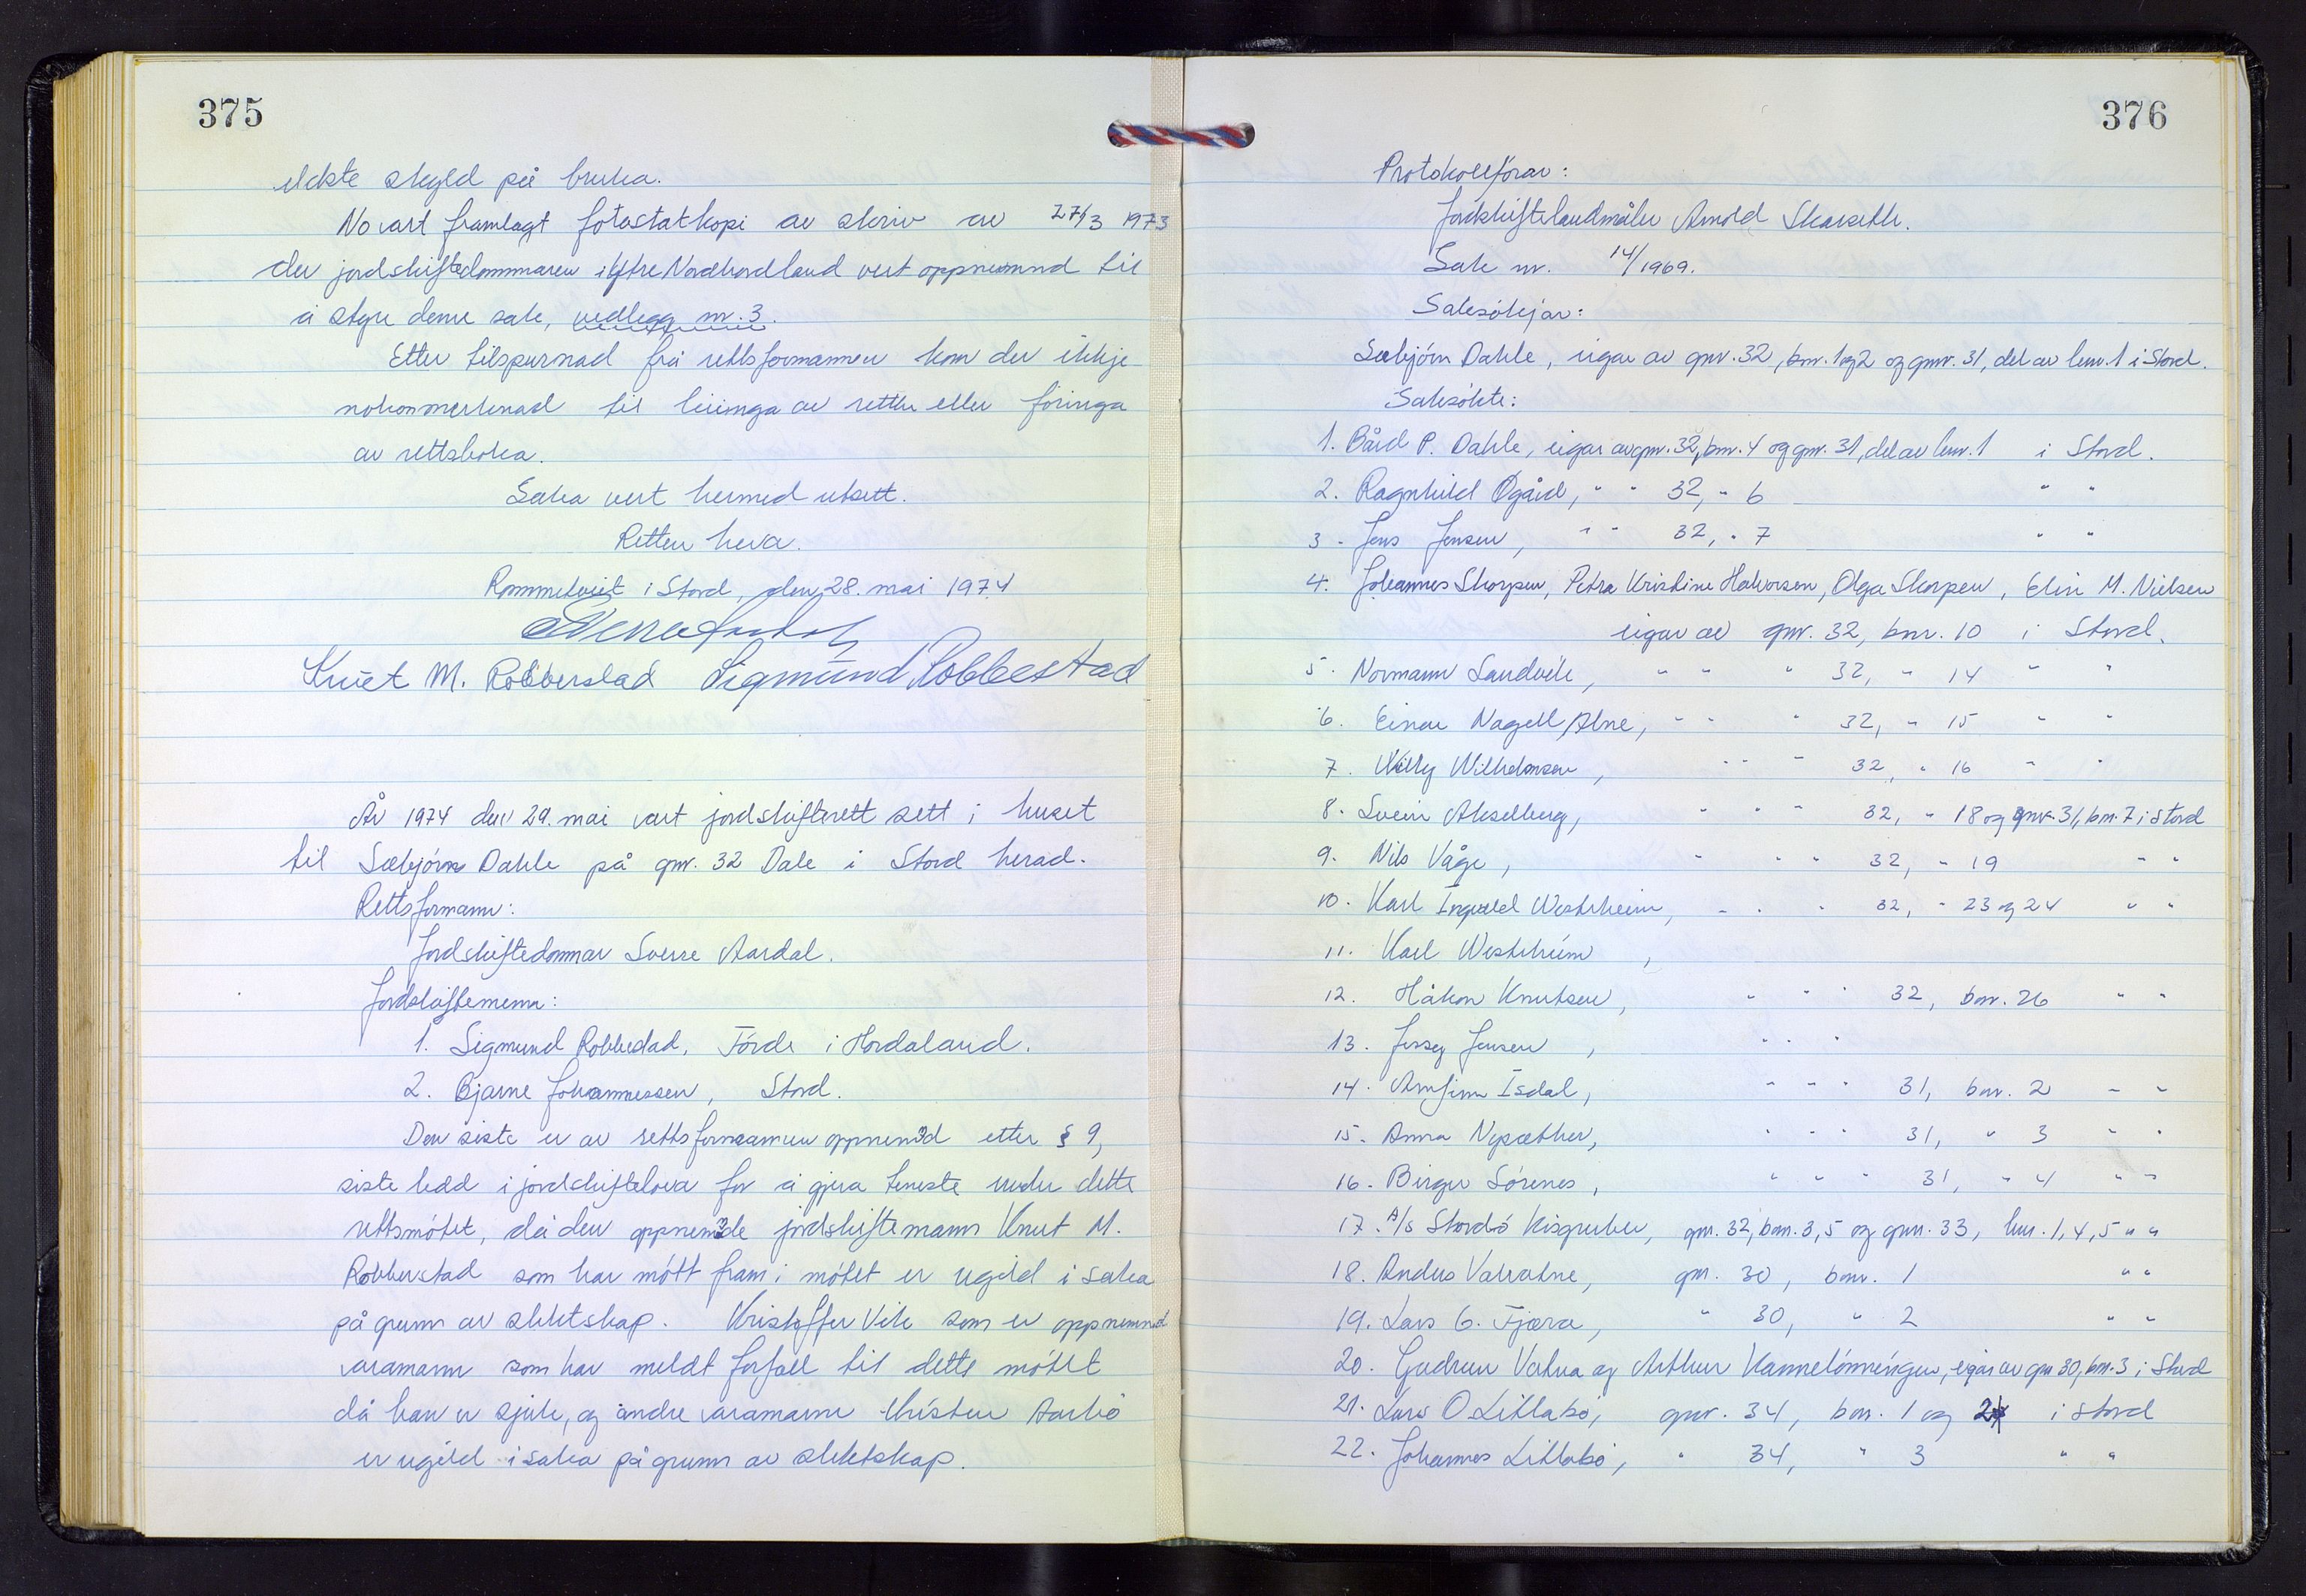 375
eldste skyld på bruka.
No vart framlagt fotostatkopi av skriv av 27/3 1973
der jordskiftedommaren i Ytre Nordhordland vert oppnemnd til
å styre denne sak, vedlegg nr. 3.
Etter tilspurnad frå rettsformannen kom der ikkje
nokon merknad til lovinga av retten eller föringa
av rettsboka.
Saka vert hermed utsett.
Retten heva.
Rommetveit i Stord, den 28. mai 1974
Knut M. Robberstad Sigmund Robbestad
År 1974 den 29. mai vart jordskifterett sett i huset
til Sæbjörn Dahle på gnr. 32 Dale i Stord herad.
Rettsformann:
Jordskiftedommar Sverre Aardal.
Jordskiftemenn:
1. Sigmund Robbestad, Förde i Hordaland.
2. Bjarne Johannessen, Stord.
Den siste er av rettsformannen oppnemnd etter § 9,
siste ledd i jordskiftelova for å gjera teneste under dette
rettsmötet, då den oppnemnde jordskiftemann Knut M.
Robberstad som har mött fram i mötet er ugild i saka
på grunn av slektskap. Kristoffer Vik som er oppnemnd
varamann som har meldt forfall til dette mötet
då han er sjuk, og andre varamann Kristen Aarbö
er ugild i saka på grunn av slektskap.
376
Protokollförar:
Jordskiftelandmåler Arnold Skarseth.
Sak nr. 14/1969.
Saksökjar:
Sæbjörn Dahle, eigar av gnr. 32, bnr. 1 og 2 og gnr. 31, del av bnr. 1 i Stord.
Saksökte:
1. Bård P. Dahle, eigar av gnr. 32, bnr. 4 og gnr. 31, del av bnr. 1 i Stord.
2. Ragnhild Øgård, " " 32, " 6 " "
3. Jens Jensen, " " 32, " 7 " "
4. Johannes Skorpen, Petra Kristine Halvorsen, Olga Skorpen, Elin M. Nielsen
eigar av gnr. 32, bnr. 10 i Stord.
5. Normann Sandvik, " " " 32, " 14 " "
6. Einar Nagell Alne, " " " 32, " 15 " "
7. Willy Wilhelmsen, " " " 32, " 16 " "
8. Svein Akselberg, " " " 32, " 18 og gnr. 31, bnr. 7 i Stord
9. Nils Våge, " " " 32, " 19 " "
10. Karl Ingvald Westrheim, " " " 32, " 23 og 24 " "
11. Karl Westrheim,
12. Håkon Knutsen, " " " 32, bnr. 26 " "
13. Jensen, " " "
14. Arnfinn Isdal, " " " 31, bnr. 2 " "
15. Anna Nysæther, " " " 31, " 3 " "
16. Birger Sörenes, " " " 31, " 4 " "
17. A/s Stordö Kisgruber, gnr. 32, bnr. 3, 5 og gnr. 33, bnr. 1, 4, 5 " "
18. Anders Vatnatne, gnr. 30, bnr. 1 " "
19. Lars G. Fjæra, " 30, " 2 " "
20. Gudrun Vatna og Arthur Kannelönningen, eigar av gnr 30, bnr. 3 i Stord
21. Lars O Litlabö, gnr. 34, bnr. 1 og 2 i Stord
22. Johannes Litlabö, " 34, " 3 " "